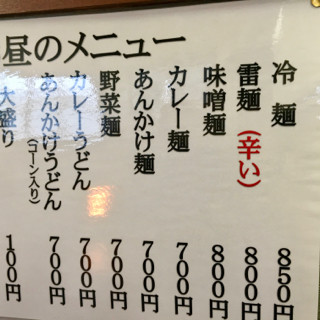 昼のメニュー
冷麺 850円
雷麺(辛い) 800円
味噌麺 800円
カレー麺 700円
あんかけ麺 700円
野菜麺 700円
カレーうどん 700円
あんかけうどん(コーン入り) 700円
大盛り 100円